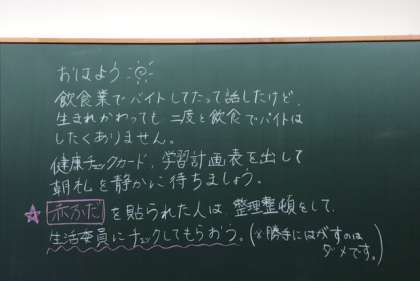 おはよう
飲食業でバイトしてたって話したけど、
生まれかわっても 二度と飲食でバイトは
したくありません。
健康チェックカード、学習計画表を出して
朝礼を静かに待ちましょう。
★ 赤ふだ を貼られた人は、整理整頓をして、
生活委員にチェックしてもらおう。(※勝手にはがすのは
ダメです。)